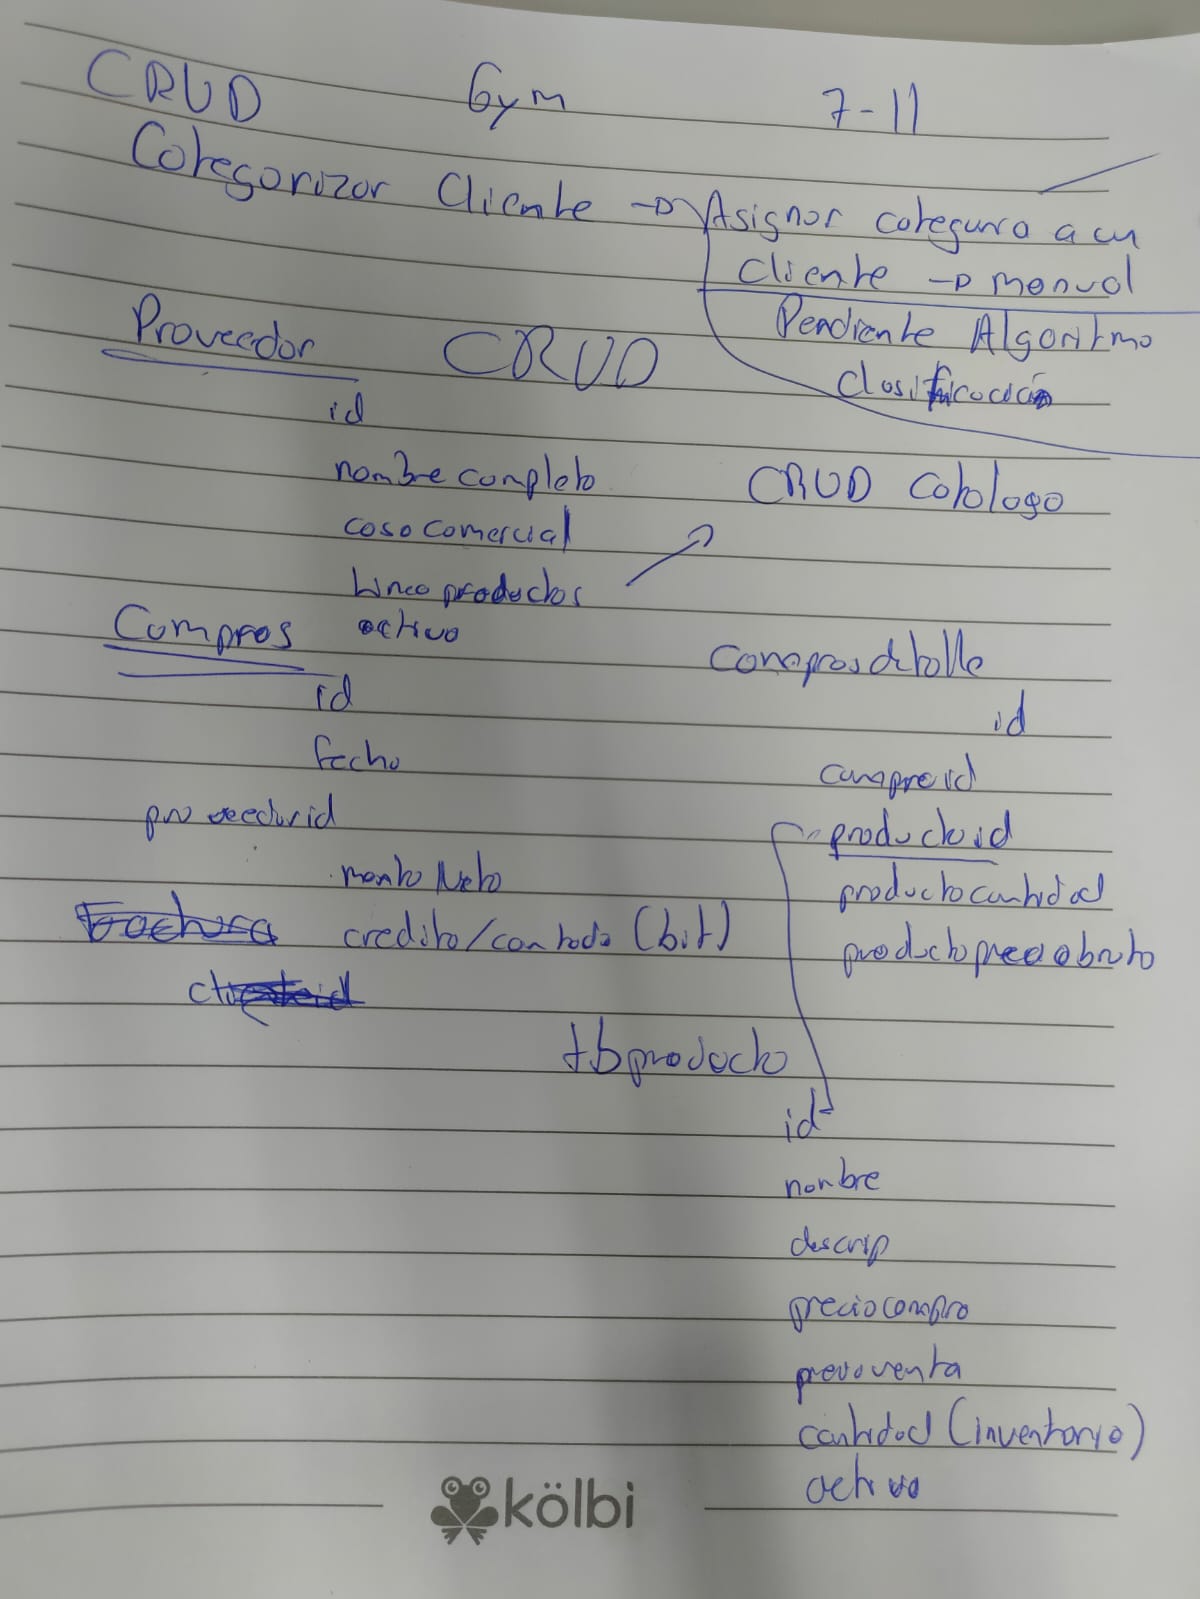 CRUD Gym 7-11
Categorizar Cliente → Asignar categoria a un
cliente → manual
Pendiente Algoritmo
Clasificación
Proveedor CRUD
id
nombre completo
casa comercial
linea productos
activo
CRUD Catalogo
Compras
id
fecha
proveedorid
monto Neto
credito/contado (bit)
comprasdetalle
id
compraid
productoid
productocantidad
productopreciobruto
tbproducto
id
nombre
descrip
preciocompra
precioventa
cantidad (inventario)
activo
kölbi